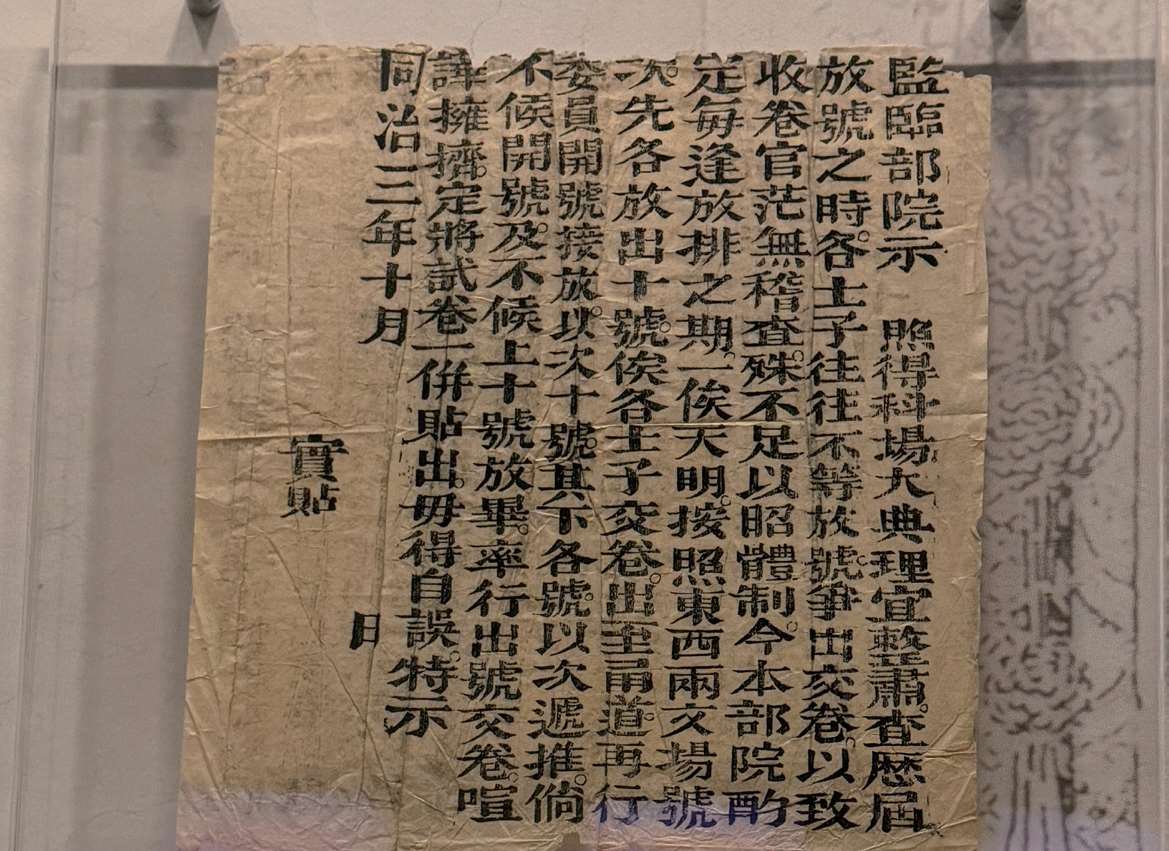 監臨部院示　照得科場大典理宜整肅。查歷屆
放號之時。各士子往往不等放號。爭出交卷。以致
收卷官茫無稽查。殊不足以昭體制。今本部院酌
定每逢放排之期。一俟天明。按照東西兩文場號
次。先各放出十號。俟各士子交卷。出至甬道。再行
委員開號接放。以次十號。其下各號。以次遞推。倘
不候開號。及不候上十號放畢。率行出號交卷。喧
譁擁擠。定將試卷一併貼出。毋得自誤。特示
同治三年十月　　日
實貼